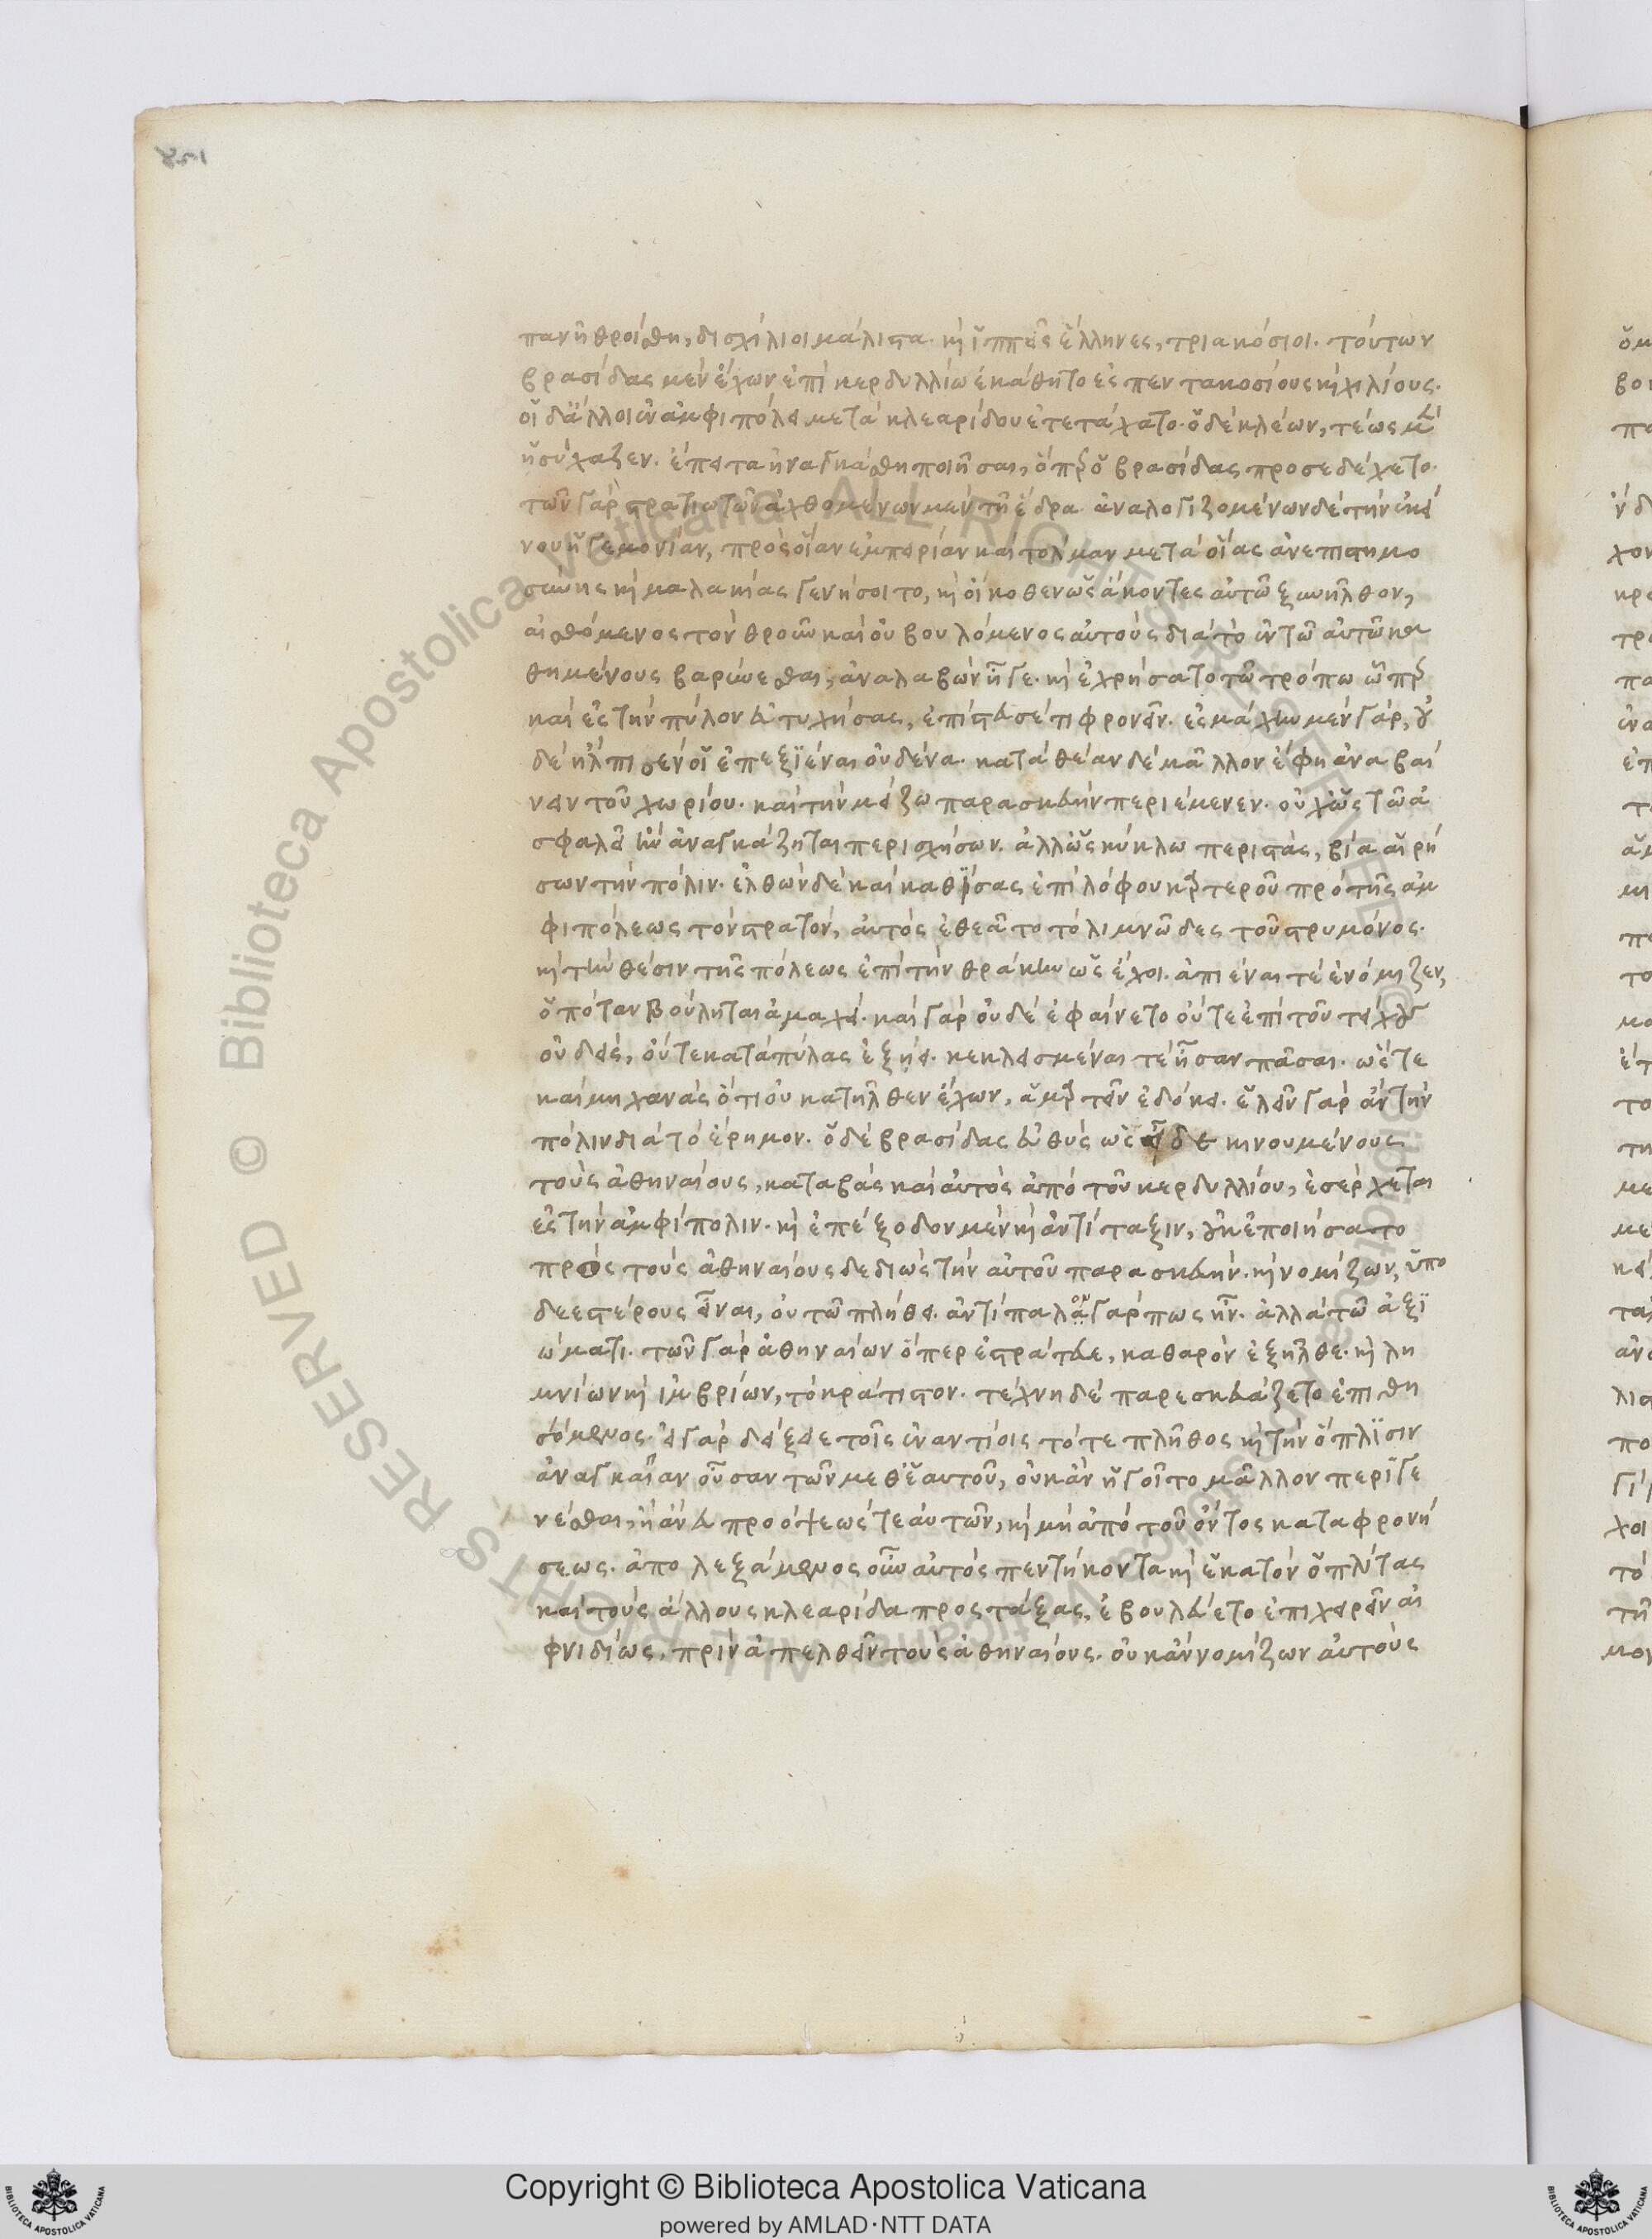 παν ἠθροίσθη, δισχίλιοι μάλιστα. καὶ ἱππεῖς ἕλληνες, τριακόσιοι. τούτων
βρασίδας μὲν ἔχων ἐπὶ κερδυλλίω ἐκάθητο ἐς πεντακοσίους καὶ χιλίους.
οἱ δ' ἄλλοι ἐν ἀμφιπόλει μετὰ κλεαρίδου ἐτετάχατο. ὁ δὲ κλέων, τέως μὲν
ἡσύχαζεν. ἔπειτα ἠναγκάσθη ποιῆσαι, ὅπερ ὁ βρασίδας προσεδέχετο.
τῶν γὰρ στρατιωτῶν ἀχθομένων μὲν τῆ ἕδρα. ἀναλογιζομένων δὲ τὴν ἐκεί
νου ἡγεμονίαν, πρὸς οἵαν ἐμπειρίαν καὶ τόλμαν μετὰ οἵας ἀνεπιστημο
σύνης καὶ μαλακίας γενήσοιτο, καὶ οἴκοθεν ὡς ἄκοντες αὐτῶ ξυνῆλθον,
αἰσθόμενος τὸν θροῦν καὶ οὐ βουλόμενος αὐτοὺς διὰ τὸ ἐν τῶ αὐτῶ κα
θημένους βαρύνεσθαι, ἀναλαβὼν ἦγε. καὶ ἐχρήσατο τῶ τρόπω ὧπερ
καὶ ἐς τὴν πύλον εὐτυχήσας, ἐπίστευσέ τι φρονεῖν. ἐς μάχην μὲν γὰρ, οὐ
δὲ ἤλπισεν οἷ ἐπεξιέναι οὐδένα. κατὰ θέαν δὲ μᾶλλον ἔφη ἀναβαί
νειν τοῦ χωρίου. καὶ τὴν μείζω παρασκευὴν περιέμενεν. οὐχ ὡς τῶ ἀ
σφαλεῖ ἢν ἀναγκάζηται περισχήσων. ἀλλ' ὡς κύκλω περιστὰς, βία αἱρή
σων τὴν πόλιν. ἐλθὼν δὲ καὶ καθίσας ἐπὶ λόφου καρτεροῦ πρὸ τῆς ἀμ
φιπόλεως τὸν στρατὸν, αὐτὸς ἐθεᾶτο τὸ λιμνῶδες τοῦ στρυμόνος.
καὶ τὴν θέσιν τῆς πόλεως ἐπὶ τὴν θράκην ὡς ἔχοι. ἀπιέναι τὲ ἐνόμιζεν,
ὁπόταν βούληται ἀμαχεί. καὶ γὰρ οὐδὲ ἐφαίνετο οὔτε ἐπὶ τοῦ τείχους
οὐδεὶς, οὔτε κατὰ πύλας ἐξήει. κεκλεισμέναι τὲ ἦσαν πᾶσαι. ὥστε
καὶ μηχανὰς ὅτι οὐ κατῆλθεν ἔχων, ἁμαρτεῖν ἐδόκει. ἑλεῖν γὰρ ἂν τὴν
πόλιν διὰ τὸ ἔρημον. ὁ δὲ βρασίδας εὐθὺς ὡς εἶδε κινουμένους
τοὺς ἀθηναίους, καταβὰς καὶ αὐτὸς ἀπὸ τοῦ κερδυλλίου, ἐσέρχεται
ἐς τὴν ἀμφίπολιν. καὶ ἐπέξοδον μὲν καὶ ἀντίταξιν, οὐκ ἐποιήσατο
πρὸς τοὺς ἀθηναίους δεδιὼς τὴν αὐτοῦ παρασκευήν. καὶ νομίζων, ὑπο
δεεστέρους εἶναι, οὐ τῶ πλήθει. ἀντίπαλα γάρ πως ἦν. ἀλλὰ τῶ ἀξι
ώματι. τῶν γὰρ ἀθηναίων ὅπερ ἐστράτευε, καθαρὸν ἐξῆλθε. καὶ λη
μνίων καὶ ἰμβρίων, τὸ κράτιστον. τέχνη δὲ παρεσκευάζετο ἐπιθη
σόμενος. εἰ γὰρ δείξειε τοῖς ἐναντίοις τό τε πλῆθος καὶ τὴν ὅπλισιν
ἀναγκαίαν οὖσαν τῶν μεθ' ἑαυτοῦ, οὐκ ἂν ἡγοῖτο μᾶλλον περιγε
νέσθαι, ἢ ἄνευ προόψεώς τε αὐτῶν, καὶ μὴ ἀπὸ τοῦ ὄντος καταφρονή
σεως. ἀπολεξάμενος οὖν αὐτὸς πεντήκοντα καὶ ἑκατὸν ὁπλίτας
καὶ τοὺς ἄλλους κλεαρίδα προστάξας, ἐβουλεύετο ἐπιχειρεῖν αἰ
φνιδίως, πρὶν ἀπελθεῖν τοὺς ἀθηναίους. οὐκ ἂν νομίζων αὐτοὺς
Copyright © Biblioteca Apostolica Vaticana
powered by AMLAD·NTT DATA